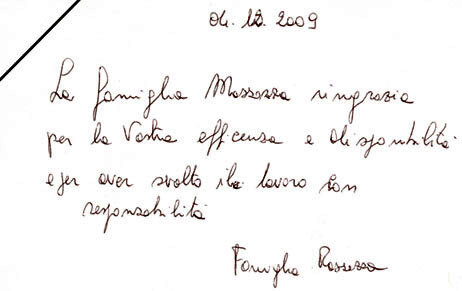 04.12.2009
La famiglia Massazza ringrazia
per la Vostra efficensa e disponibilità
e per aver svolto il lavoro con
responsabilità
Famiglia